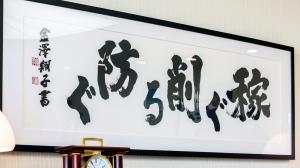 稼ぐ削る防ぐ
金澤翔子書